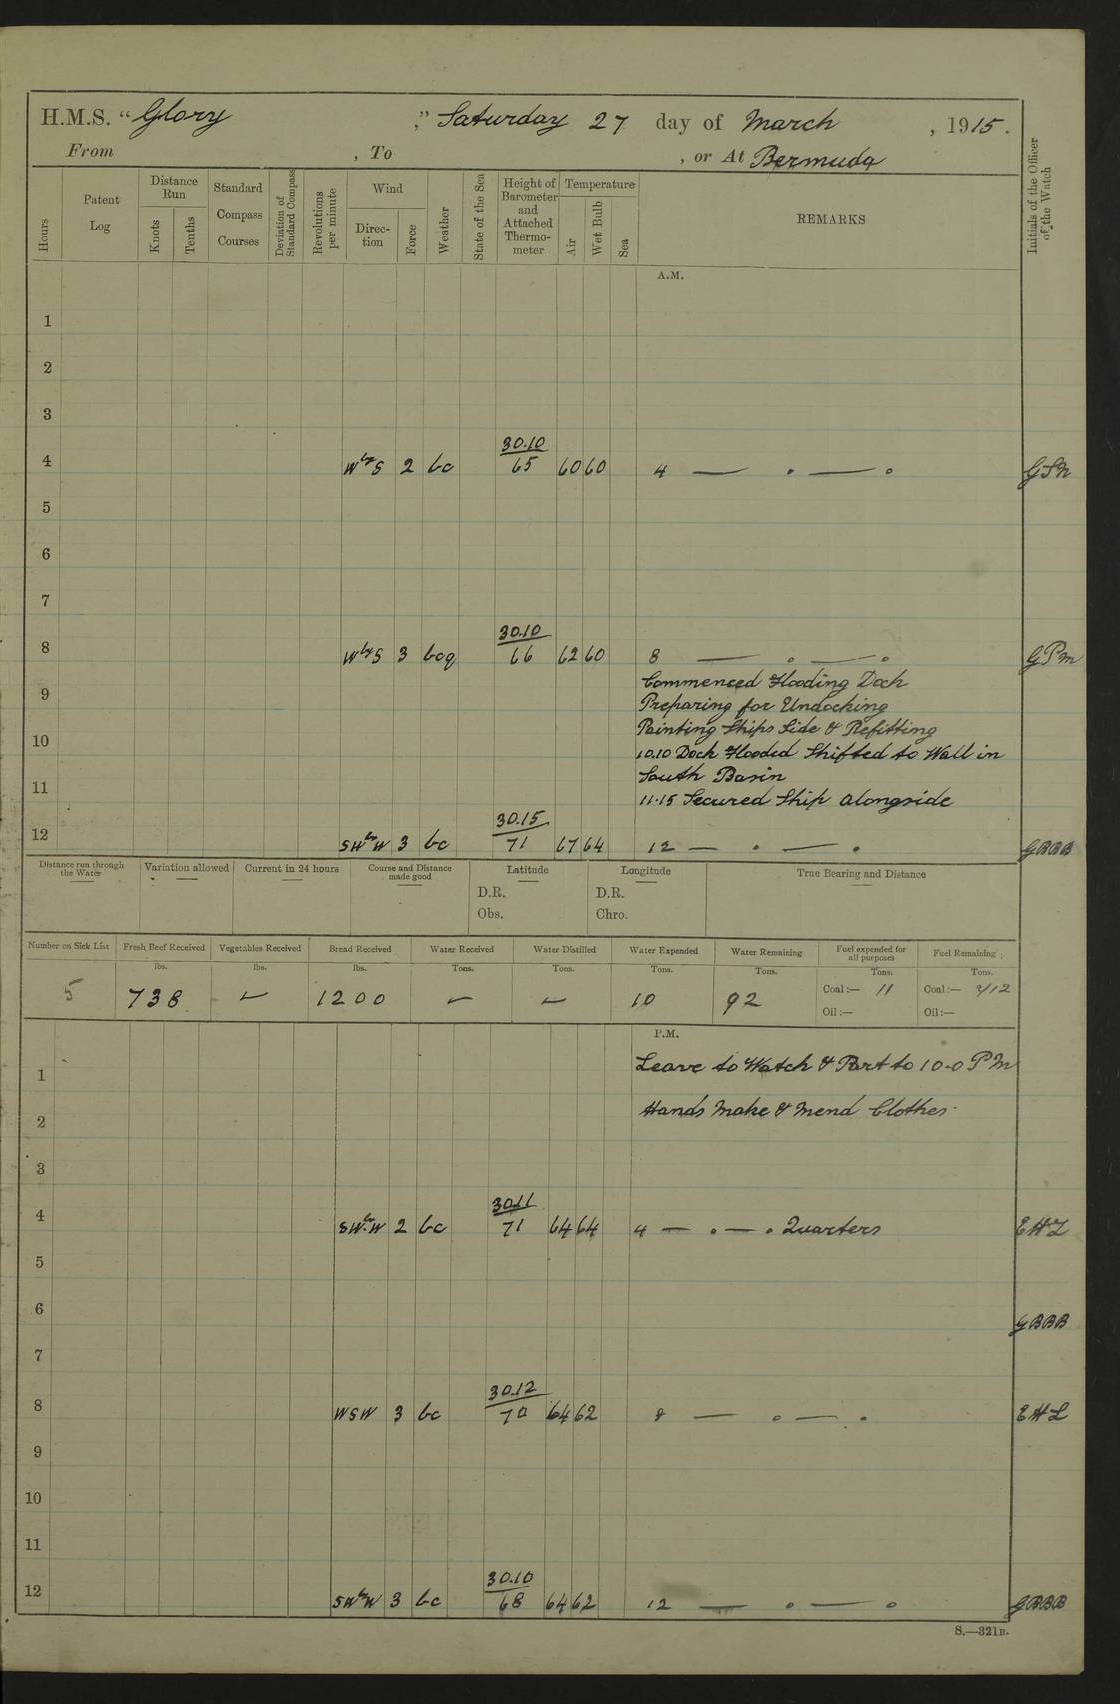 H.M.S. "Glory," Saturday 27 day of March, 1915.
From , To , or At Bermuda
Hours
Patent Log
Distance Run
Knots
Tenths
Standard Compass Courses
Deviation of Standard Compass
Revolutions per minute
Wind
Direction
Force
Weather
State of the Sea
Height of Barometer and Attached Thermometer
Temperature
Air
Wet Bulb
Sea
REMARKS
Initials of the Officer of the Watch
A.M.
1
2
3
30.10
4 WbyS 2 bc 65 60 60 4 — . — . GSN
5
6
7
30.10
8 WbyS 3 bcq 66 62 60 8 — . — . GPM
Commenced Flooding Dock
9
Preparing for Undocking
Painting Ships Side & Refitting
10 10.10 Dock Flooded Shifted to Wall in
South Basin
11 11.15 Secured Ship alongside
30.15
12 SWbyW 3 bc 71 67 64 12 — . — . GBBB
Distance run through the Water —
Variation allowed —
Current in 24 hours —
Course and Distance made good —
Latitude —
D.R.
Obs.
Longitude —
D.R.
Chro.
True Bearing and Distance —
Number on Sick List Fresh Beef Received Vegetables Received Bread Received Water Received Water Distilled Water Expended Water Remaining Fuel expended for all purposes Fuel Remaining
lbs. lbs. lbs. Tons. Tons. Tons. Tons. Tons. Tons.
5 738 — 1200 — — 10 92 Coal:— 11 Coal:— 712
Oil:— Oil:—
P.M.
Leave to Watch & Part to 10-0 PM
1
Hands Make & Mend Clothes
2
3
30.11
4 SWbyW 2 bc 71 64 64 4 — . — . Quarters EHL
5
6 GBBB
7
30.12
8 WSW 3 bc 70 64 62 8 — . — . EHL
9
10
11
30.10
12 SWbyW 3 bc 68 64 62 12 — . — . GBBB
S.—321B.